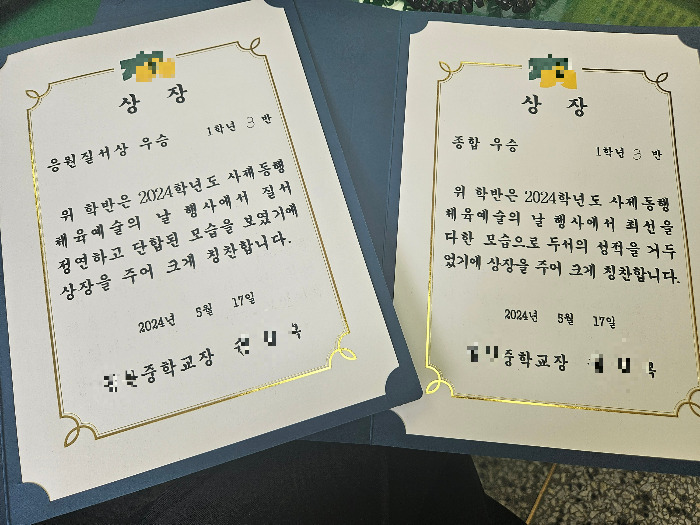 상 장
응원질서상 우승 1학년 3 반
위 학반은 2024학년도 사제동행
체육예술의 날 행사에서 질서
정연하고 단합된 모습을 보였기에
상장을 주어 크게 칭찬합니다.
2024년 5월 17일
중학교장
상 장
종합 우승 1학년 3 반
위 학반은 2024학년도 사제동행
체육예술의 날 행사에서 최선을
다한 모습으로 두서의 성적을 거두
었기에 상장을 주어 크게 칭찬합니다.
2024년 5월 17일
중학교장